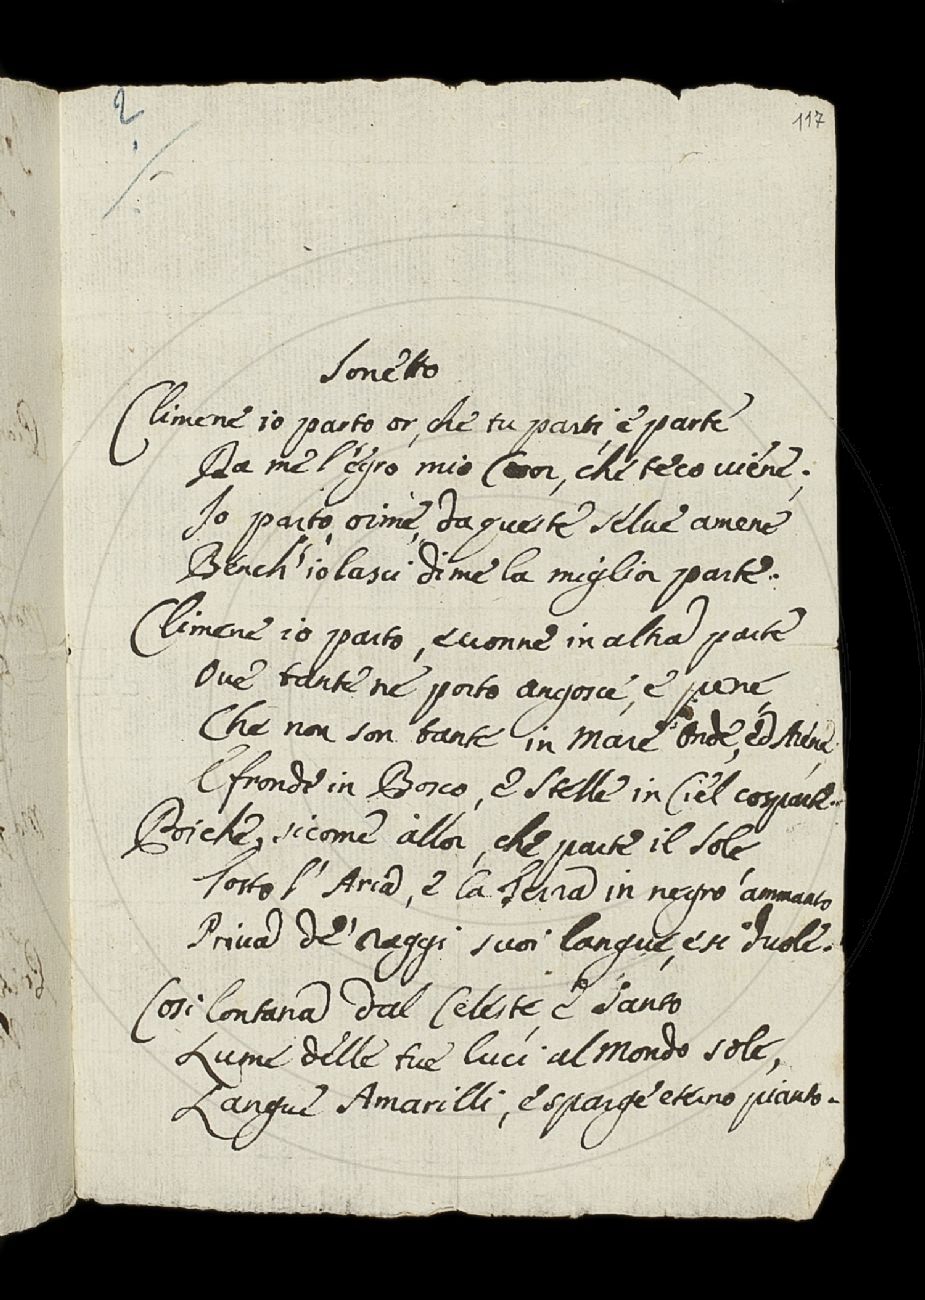 2
117
Sonetto
Climene io parto or, che tu parti, e parte
Da me l'egro mio Cor, che teco viene;
Io parto, oimè, da queste selve amene
Bench' io lasci di me la miglior parte.
Climene io parto, e vonne in altra parte
Ove tante ne porto angosce, e pene
Che non son tante in Mare Onde, ed Arene,
E fronde in Bosco, e Stelle in Ciel cosparte.
Poiche, sicome allor, che parte il Sole
Tosto l' Aria, e la Terra in negro ammanto
Priva de' raggi suoi langue, e si duole.
Cosi lontana dal Celeste e Santo
Lume delle tue luci al Mondo sole,
Langue Amarilli, e sparge eterno pianto.